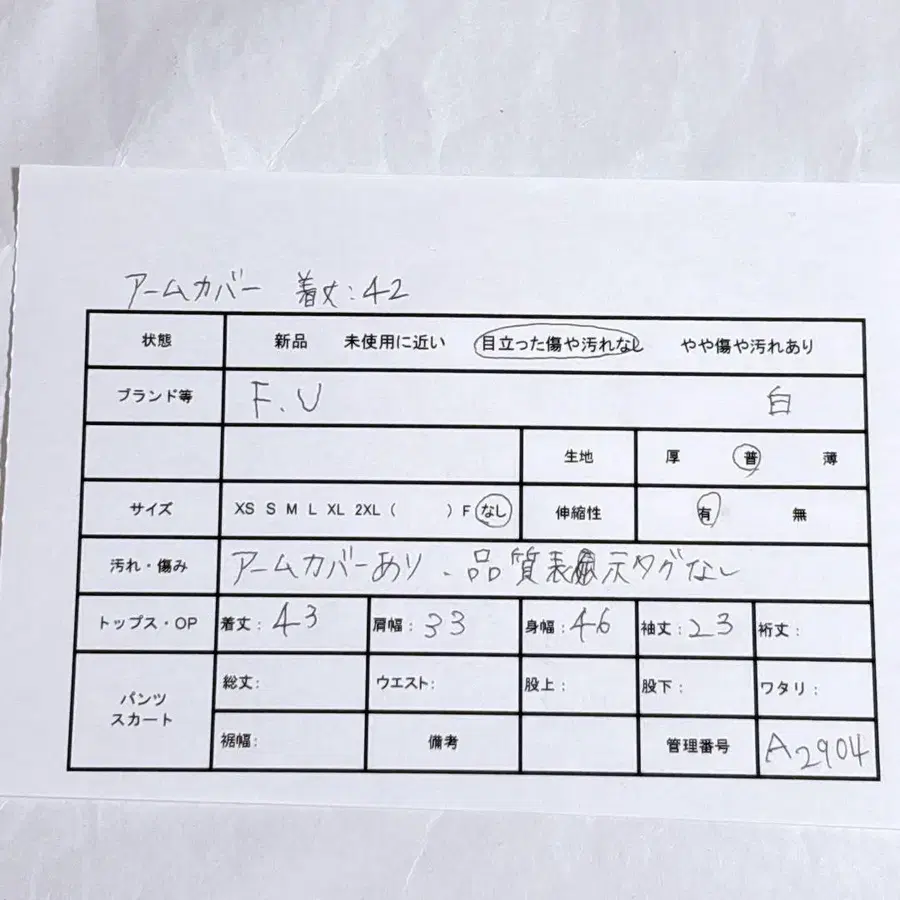 アームカバー 着丈:42
状態 新品 未使用に近い 目立った傷や汚れなし やや傷や汚れあり
ブランド等 F.U 白
生地 厚 普 薄
サイズ XS S M L XL 2XL ( ) F なし 伸縮性 有 無
汚れ・傷み アームカバーあり、品質表示タグなし
トップス・OP 着丈: 43 肩幅: 33 身幅: 46 袖丈: 23 裄丈:
パンツ スカート 総丈: ウエスト: 股上: 股下: ワタリ:
裾幅: 備考 管理番号 A2904